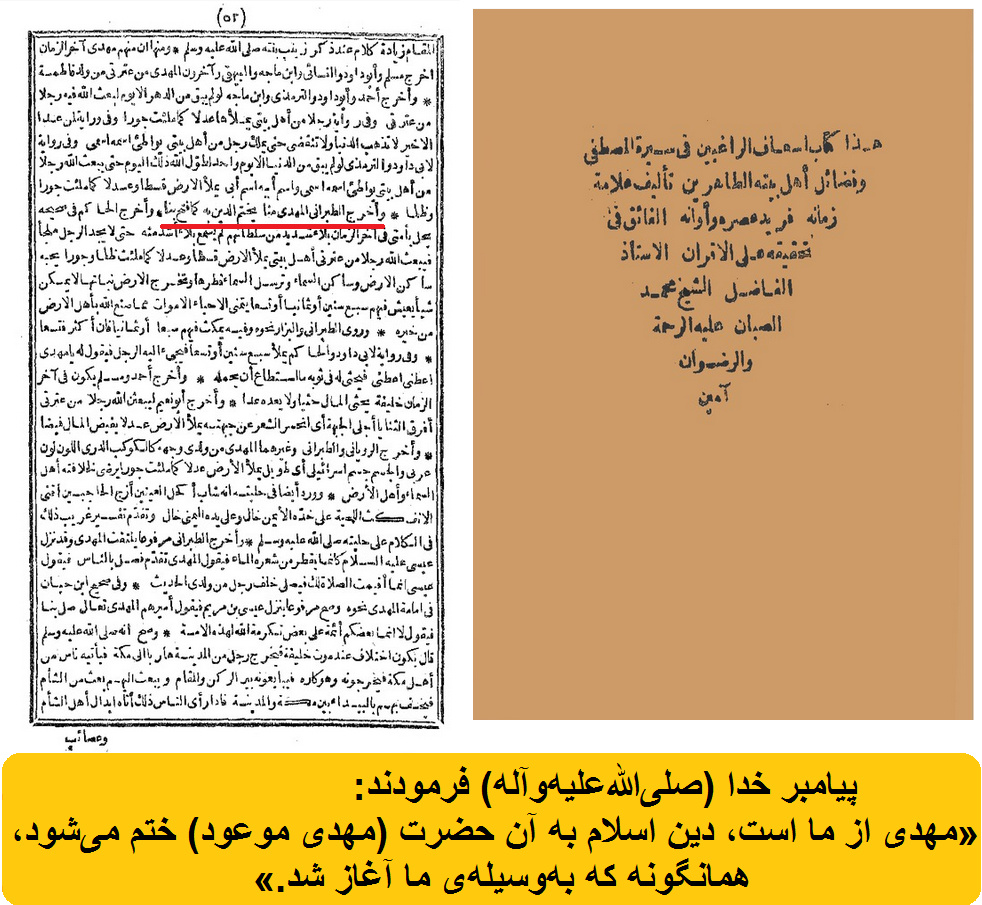 (٥٢)
المقام زيادة كلام عند ذكر زينب بنته صلى الله عليه وسلم * ومنها ان منهم مهدى آخر الزمان
اخرج مسلم وأبو داود والنسائى وابن ماجه والبيهقى وآخرون المهدى من عترتى من ولد فاطمة
* وأخرج أحمد وأبو داود والترمذى وابن ماجه لو لم يبق من الدهر الا يوم لبعث الله فيه رجلا
من عترتى وفى رواية رجلا من أهل بيتى يملأها عدلا كما ملئت جورا وفى رواية لمن عدا
الاخير لا تذهب الدنيا ولا تنقضى حتى يملك رجل من أهل بيتى يواطئ اسمه اسمى وفى رواية
لابى داود والترمذى لو لم يبق من الدنيا الا يوم واحد لطول الله ذلك اليوم حتى يبعث الله رجلا
من أهل بيتى يواطئ اسمه اسمى واسم أبيه اسم أبى يملأ الارض قسطا وعدلا كما ملئت جورا
وظلما * وأخرج الطبرانى المهدى منا يختم الدين به كما فتح بنا * وأخرج الحاكم فى صحيحه
يحل بأمتى فى آخر الزمان بلاء شديد من سلطانهم لم يسمع بلاء أشد منه حتى لا يجد الرجل ملجأ
فيبعث الله رجلا من عترتى أهل بيتى يملأ الارض قسطا وعدلا كما ملئت ظلما وجورا يحبه
ساكن الارض وساكن السماء وترسل السماء قطرها وتخرج الارض نباتها لا يمسكن
شيأ يعيش فيهم سبع سنين أو ثمانيا أو تسعا يتمنى الاحياء الاموات مما صنع الله بأهل الارض
من خيره * وروى الطبرانى والبزار نحوه وفيه يمكث فيهم سبعا أو ثمانيا فان أكثر فتسعا
* وفى رواية لابى داود والحاكم يملأ سبع سنين أو تسعا فيجىء اليه الرجل فيقول له يا مهدى
اعطنى اعطنى فيحثى له فى ثوبه ما استطاع أن يحمله * وأخرج أحمد ومسلم يكون فى آخر
الزمان خليفة يحثى المال حثيا ولا يعده عدا * وأخرج أبو نعيم ليبعثن الله رجلا من عترتى
أفرق الثنايا أجلى الجبهة أى انحسر الشعر عن جبهته يملأ الارض عدلا يفيض المال فيضا
* وأخرج الرويانى والطبرانى وغيرهما المهدى من ولدى وجهه كالكوكب الدرى اللون لون
عربى والجسم جسم اسرائيلى أى طويل يملأ الأرض عدلا كما ملئت جورا يرضى لخلافته أهل
السماء وأهل الارض * وورد أيضا فى حليته انه شاب أكحل العينين أزج الحاجبين أقنى
الانف كث اللحية على خده الأيمن خال وعلى يده اليمنى خال وتقدم تفسير غريب ذلك
فى الكلام على حليته صلى الله عليه وسلم * وأخرج الطبرانى مرفوعا يلتفت المهدى وقد نزل
عيسى عليه السلام كأنما يقطر من شعره الماء فيقول المهدى تقدم فصل بالناس فيقول
عيسى انما أقيمت الصلاة لك فيصلى خلف رجل من ولدى الحديث * وفى صحيح ابن حبان
فى امامة المهدى نحوه وصح مرفوعا ينزل عيسى بن مريم فيقول أميرهم المهدى تعال صل بنا
فيقول لا انما بعضكم أئمة على بعض تكرمة الله لهذه الامة * وصح انه صلى الله عليه وسلم
قال يكون اختلاف عند موت خليفة فيخرج رجل من المدينة هاربا الى مكة فيأتيه ناس من
أهل مكة فيخرجونه وهو كاره فيبايعونه بين الركن والمقام ويبعث اليهم بعث من الشأم
فيخسف بهم بالبيداء بين مكة والمدينة فاذا رأى الناس ذلك أتاه ابدال أهل الشأم
وعصائب
هذا كتاب اسعاف الراغبين فى سيرة المصطفى
وفضائل أهل بيته الطاهرين تأليف علامة
زمانه فريد عصره وأوانه الفائق فى
تحقيقه على الاقران الاستاذ
الفاضل الشيخ محمد
الصبان عليه الرحمة
والرضوان
آمين
پیامبر خدا (صلی‌الله‌علیه‌وآله) فرمودند:
«مهدی از ما است، دین اسلام به آن حضرت (مهدی موعود) ختم می‌شود،
همانگونه که به‌وسیله‌ی ما آغاز شد.»